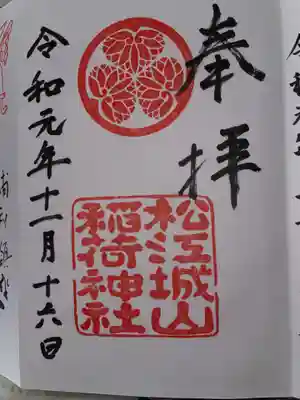 奉拝
松江城山
稲荷神社
令和元年十一月十六日